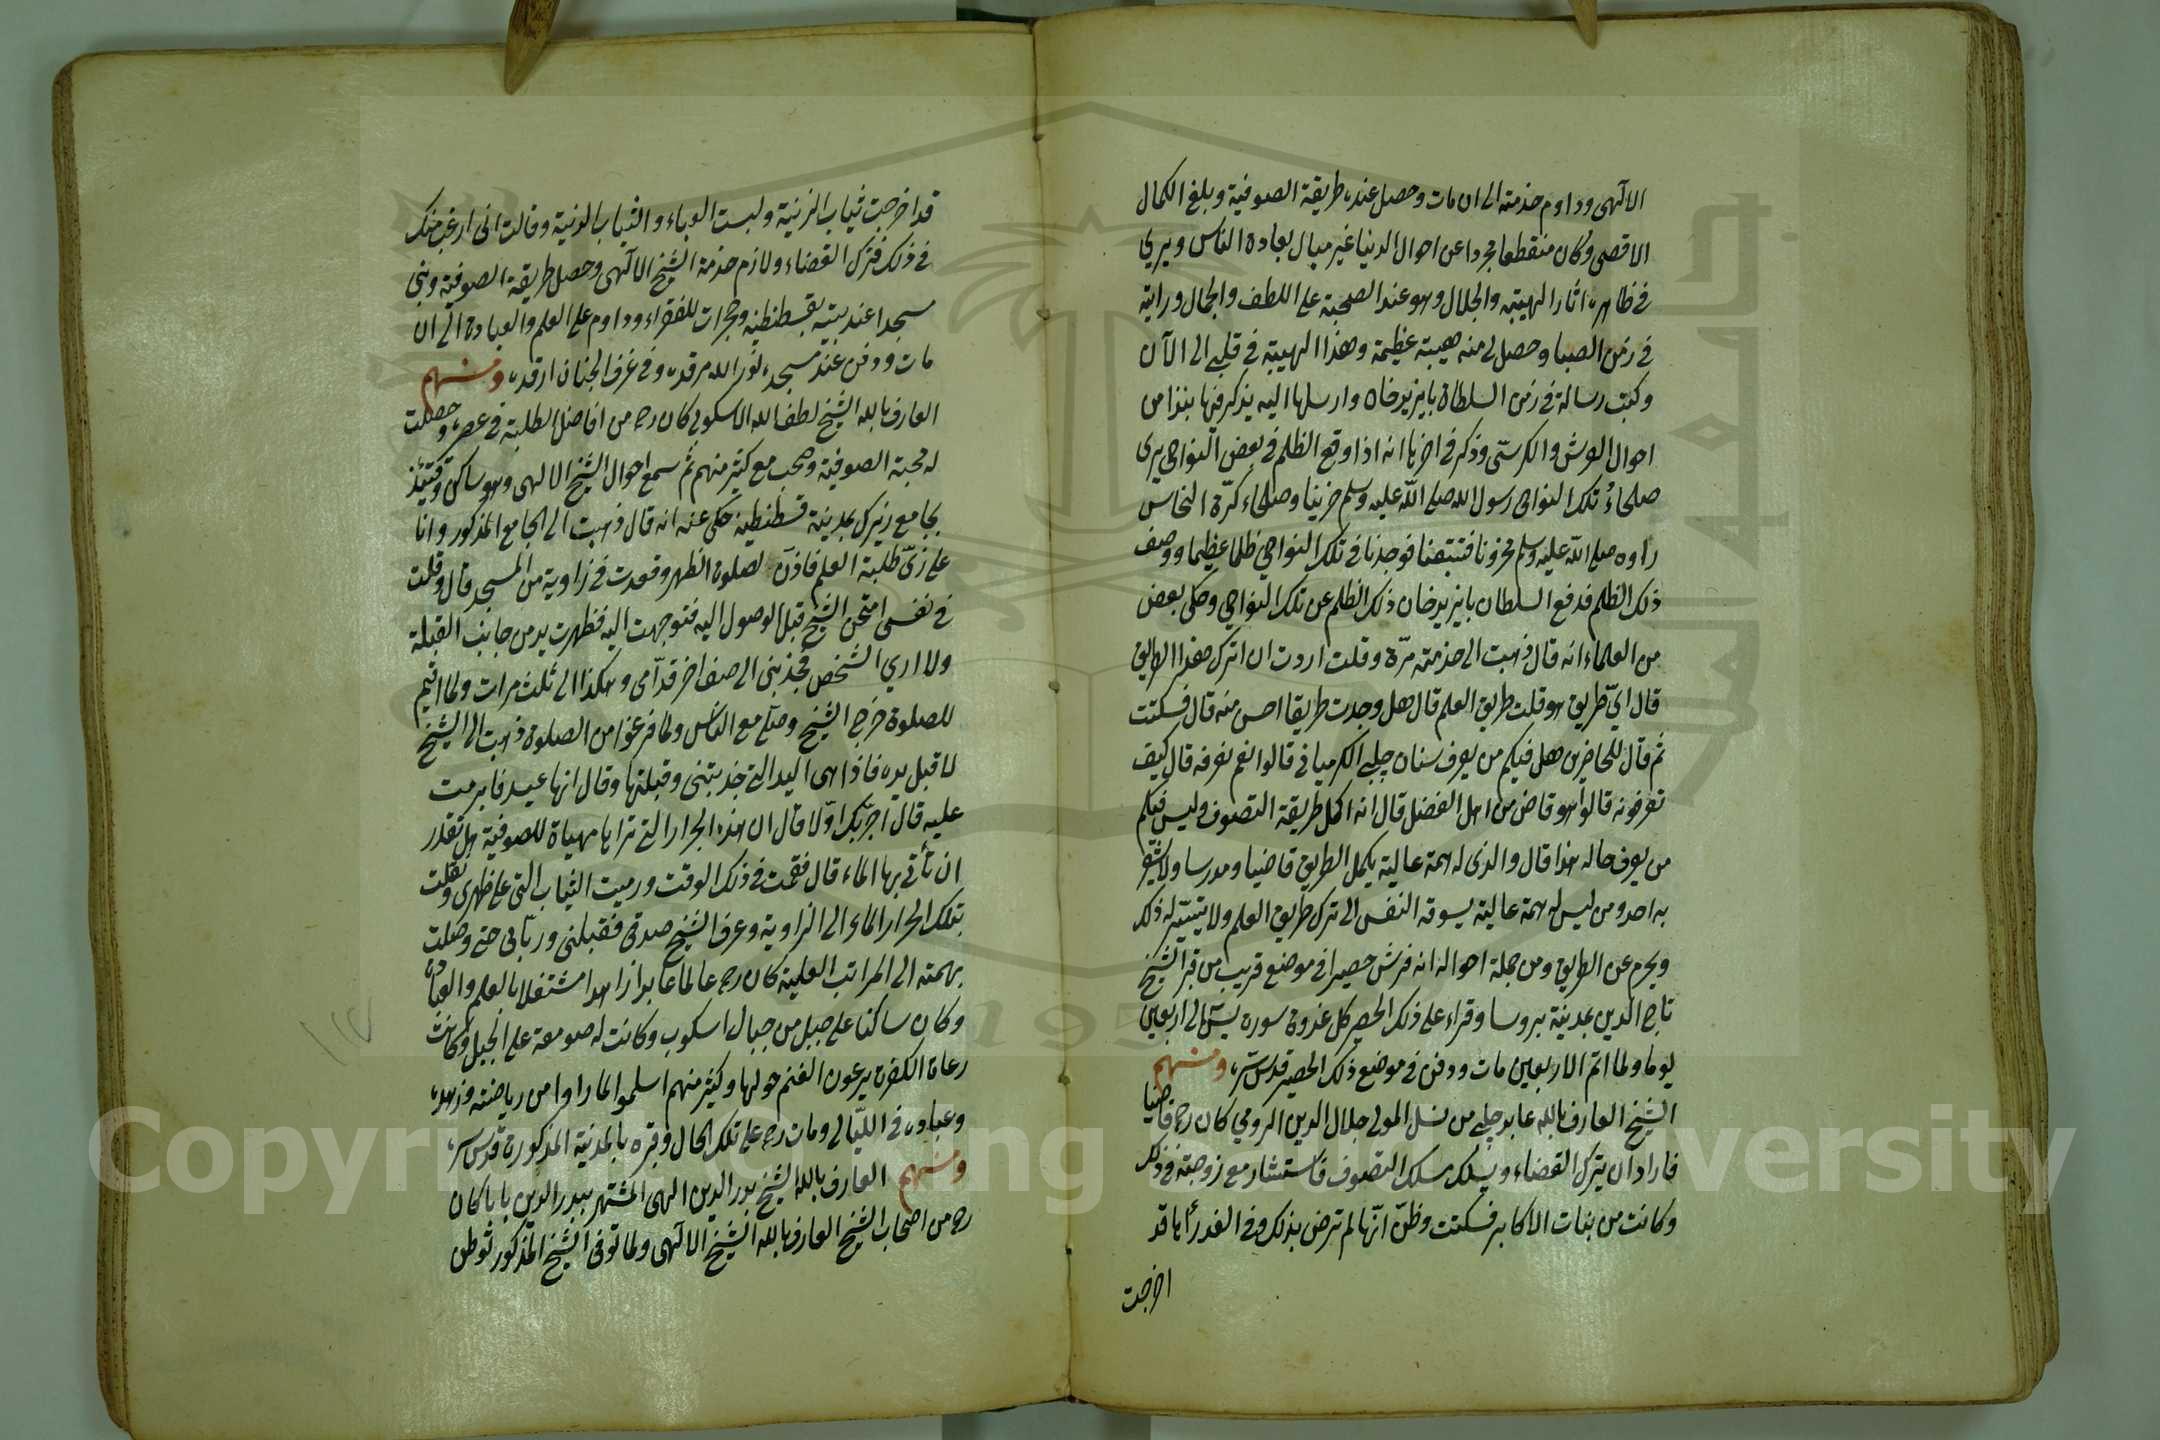 الالهى وداوم خدمته الى ان مات وحصل عنده طريقة الصوفية وبلغ الكمال
الاقصى وكان منقطعا مجردا عن احوال الدنيا غير ميال بعادة الناس ويرى
فى ظاهره اثار الهيبة والجلال وهو عند الصحبة على اللطف والجمال ورايته
فى زمن الصبا وحصل لى منه هيبة عظيمة وهذا الهيبة فى قلبى الى الآن
وكتب رسالة فى زمن السلطان بايزيدخان وارسلها اليه يذكر فيها نبذا من
احوال العرش والكرسى وذكر فى اخرها انه اذا وقع الظلم فى بعض النواحى يرى
صلحاء تلك النواحى رسول الله صلى الله عليه وسلم حزينا وصلحاء كرة النخاس
راوه صلى الله عليه وسلم محزونا فتتبعنا فوجدنا فى تلك النواحى ظلما عظيما ووصف
ذلك الظلم فدفع السلطان بايزيدخان ذلك الظلم عن تلك النواحى وحكى بعض
من العلماء انه قال ذهبت الى خدمته مرّة وقلت اردت ان اترك هذا الطريق
قال اىّ طريق هو قلت طريق العلم قال هل وجدت طريقا احسن منه قال فسكتت
ثم قال للحاضرين هل فيكم من يعرف سنان چلبى الكرميانى قالوا نعم نعرفه قال كيف
تعرفونه قالوا هو قاض من اهل الفضل قال انه اكمل طريقة التصوف وليس فيكم
من يعرف حاله هذا قال والذى له همة عالية يكمل الطريق قاضيا ومدرسا ولا يشعر
به احد ومن ليس له همة عالية يسوقه النفس الى ترك طريق العلم ولا يتيسّر له ذلك
ويحرم عن الطريق ومن جملة احواله انه فرش حصيرا فى موضع قريب من قبر الشيخ
تاج الدين بمدينة بروسا وقراء على ذلك الحصير كل غدوة سورة يس الى اربعين
يوما ولما اتم الاربعين مات ودفن فى موضع ذلك الحصير قدس سره ومنهم
الشيخ العارف بالله عابد چلبى من نسل المولى جلال الدين الرومى كان رح قاضيا
فاراد ان يترك القضاء ويسلك مسلك التصوف فاستشار مع زوجته فى ذلك
وكانت من بنات الاكابر فسكتت وظنّ انّها لم ترض بذلك وفى الغد رأها قد
اخرجت
قد اخرجت ثياب الزنية ولبست العباء والثياب الدنية وقالت انى ارغب منك
فى ذلك فترك القضاء ولازم خدمة الشيخ الالهى وحصل طريقة الصوفية وبنى
مسجدا عند بيته بقسطنطنيه وحجرات للفقراء وداوم على العلم والعبادة الى ان
مات ودفن عند مسجده نور الله مرقده وفى غرف الجنان ارقده ومنهم
العارف بالله الشيخ لطف الله الاسكوبى كان رح من افاضل الطلبة فى عصره وحصلت
له محبة الصوفية وصحب مع كثير منهم ثم سمع احوال الشيخ الالهى وهو ساكن وقتئذ
بجامع زيرك بمدينة قسطنطينه حكى عنه انه قال ذهبت الى الجامع المذكور وانا
على زىّ طلبة العلم فاذن لصلوة الظهر وقعدت فى زاوية من المسجد قال وقلت
فى نفسى امتحن الشيخ قبل الوصول اليه فتوجهت اليه فظهرت يد من جانب القبلة
ولا ارى الشخص فجذبنى الى صف اخر قدّامى وهكذا الى ثلث مرات ولما اقيم
للصلوة خرج الشيخ وصلّى مع الناس ولما فرغوا من الصلوة ذهبت الى الشيخ
لاقبل يده فاذا هى اليد التى جذبتنى وقبلتها وقال انها عيد فابرمت
عليه قال اجربك اوّلا قال ان هذه الجرار التى تراها مهياة للصوفية هل تقدر
ان تأتى بها الماء قال فقمت فى ذلك الوقت ورميت الثياب التى على ظهرى ونقلت
بتلك الجرار الماء الى الزاوية وعرف الشيخ صدقى فقبلنى وربّانى حتى وصلت
بهمته الى المراتب العلية كان رح عالما عابدا زاهدا مشتغلا بالعلم والعبادة
وكان ساكنا على جبل من جبال اسكوب وكانت له صومعة على الجبل وكانت
رعاة الكفرة يرعون الغنم حولها وكثير منهم اسلموا لما راوا من رياضته وزهده
وعباده فى الليالى ومات رح على تلك الحال وقبره بالمدينة المذكورة قدس سره
ومنهم العارف بالله الشيخ بدر الدين الهى المشتهر ببدر الدين بابا كان
رح من اصحاب الشيخ العارف بالله الشيخ الالهى ولما توفى الشيخ المذكور توطن
Copyright © King Saud University